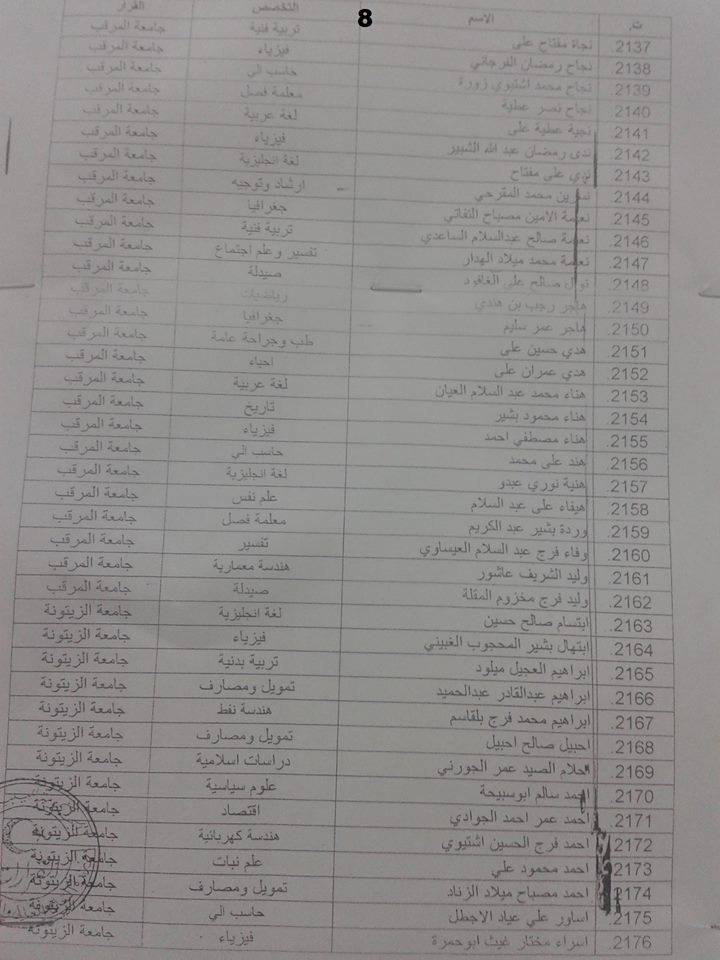 8
ت. الاسم التخصص القرار
2137. نجاة مفتاح على تربية فنية جامعة المرقب
2138. نجاح رمضان الفرجاني فيزياء جامعة المرقب
2139. نجاح محمد اشتيوي زورة حاسب الي جامعة المرقب
2140. نجاح نصر عطية معلمة فصل جامعة المرقب
2141. نجية عطية على لغة عربية جامعة المرقب
2142. ندى رمضان عبد الله الشبير فيزياء جامعة المرقب
2143. على مفتاح لغة انجليزية جامعة المرقب
2144. نسرين محمد المقرحي ارشاد وتوجيه جامعة المرقب
2145. نعيمة الامين مصباح النفاتي جغرافيا جامعة المرقب
2146. نعيمة صالح عبدالسلام الساعدي تربية فنية جامعة المرقب
2147. نعيمة محمد ميلاد الهدار تفسير وعلم اجتماع جامعة المرقب
2148. نوال صالح على الغاقود صيدلة جامعة المرقب
2149. هاجر رجب بن هندي رياضيات جامعة المرقب
2150. هاجر عمر سليم جغرافيا جامعة المرقب
2151. هدي حسين على طب وجراحة عامة جامعة المرقب
2152. هدي عمران على احياء جامعة المرقب
2153. هناء محمد عبد السلام العيان لغة عربية جامعة المرقب
2154. هناء محمود بشير تاريخ جامعة المرقب
2155. هناء مصطفي احمد فيزياء جامعة المرقب
2156. هند على محمد حاسب الي جامعة المرقب
2157. هنية نوري عبدو لغة انجليزية جامعة المرقب
2158. هيفاء على عبد السلام علم نفس جامعة المرقب
2159. وردة بشير عبد الكريم معلمة فصل جامعة المرقب
2160. وفاء فرج عبد السلام العيساوي تفسير جامعة المرقب
2161. وليد الشريف عاشور هندسة معمارية جامعة المرقب
2162. وليد فرج مخزوم المقلة صيدلة جامعة المرقب
2163. ابتسام صالح حسين لغة انجليزية جامعة الزيتونة
2164. ابتهال بشير المحجوب الغبيني فيزياء جامعة الزيتونة
2165. ابراهيم العجيل ميلود تربية بدنية جامعة الزيتونة
2166. ابراهيم عبدالقادر عبدالحميد تمويل ومصارف جامعة الزيتونة
2167. ابراهيم محمد فرج بلقاسم هندسة نفط جامعة الزيتونة
2168. احبيل صالح احبيل تمويل ومصارف جامعة الزيتونة
2169. احلام الصيد عمر الجورني دراسات اسلامية جامعة الزيتونة
2170. احمد سالم ابوسبيحة علوم سياسية جامعة الزيتونة
2171. احمد عمر احمد الجوادي اقتصاد جامعة الزيتونة
2172. احمد فرج الحسين اشتيوي هندسة كهربائية جامعة الزيتونة
2173. احمد محمود علي علم نبات جامعة الزيتونة
2174. احمد مصباح ميلاد الزناد تمويل ومصارف جامعة الزيتونة
2175. اساور علي عياد الاجطل حاسب الي جامعة الزيتونة
2176. اسراء مختار غيث ابوحمرة فيزياء جامعة الزيتونة